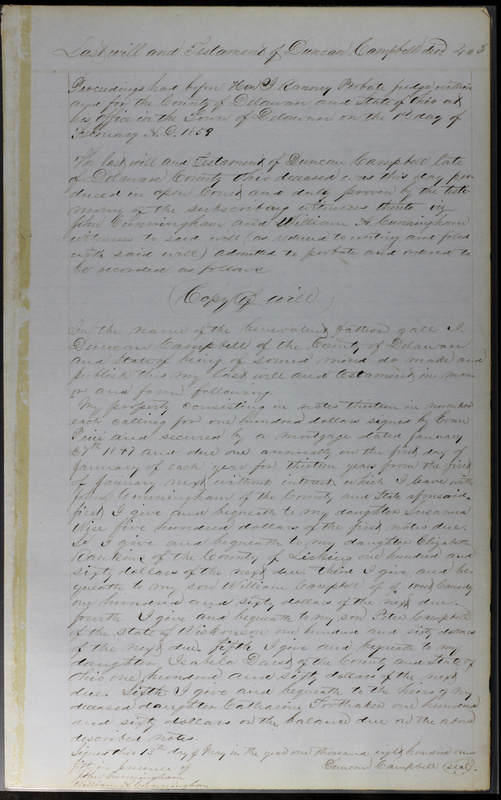 Last will and Testament of Duncan Campbell decd 203
Proceedings had before Hon T Ranney Probate Judge within
and for the County of Delawar and State of Ohio at
his Office in the Town of Delawar on the 1st day of
February A.D. 1852
The last will and Testament of Duncan Campbell late
of Delawar County Ohio deceased was this day pro
duced in open Court and duly proven by the testi
mony of the subscribing witnesses thereto viz
John Cunningham and William H. Cunningham
witnesses to said will (as reduced to writing and filed
with said will) admitted to probate and ordered to
be recorded as follows
(Copy of will)
In the name of the benevolent father of all I
Duncan Campbell of the County of Delawar
and State of being of sound mind do make and
publish this my last will and testament in man
er and form following
My property consisting in notes thirteen in number
each calling for one hundred dollars signed by Evan
Price and secured by a mortgage dated January
27th 1847 and due one annually on the first day of
January of each year for thirteen years from the first
of January next without interest which I leave with
John Cunningham of the County and State aforesaid
first I give and bequeath to my daughter Susanna
Wise five hundred dollars of the first notes due.
2d I give and bequeath to my daughter Elizabeth
Hawkins of the County of Licking one hundred and
sixty dollars of the next due. third I give and be
queath to my son William Campbell of County
one hundred and sixty dollars of the next due.
fourth I give and bequeath to my son Peter Campbell
of the State of Wiskonson one hundred and sixty dollars
of the next due. fifth I give and bequeath to my
daughter Isabela Davis of the County and State of
Ohio one hundred and sixty dollars of the next
due. Sixth I give and bequeath to the heirs of my
deceased daughter Catharine one hundred
and sixty dollars or the balance due on the above
described notes.
Signed this 15th day of May in the year one thousand eight hundred and
fifty in presence of
John Cunningham Duncan Campbell (seal)
William H Cunningham